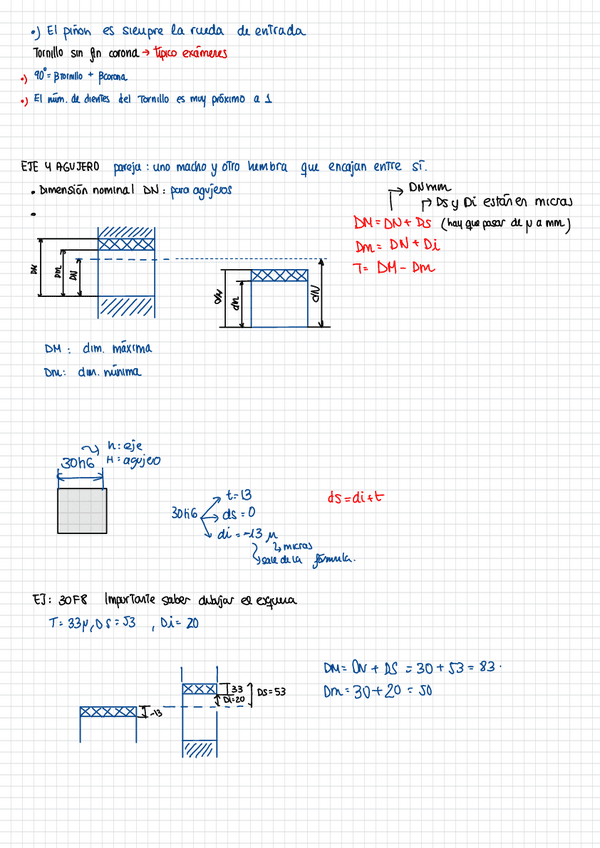 •) El piñon es siempre la rueda de entrada
Tornillo sin fin corona → típico exámenes
•) 90° = βtornillo + βcorona
•) El núm. de dientes del Tornillo es muy próximo a 1
EJE Y AGUJERO pareja: uno macho y otro hembra que encajan entre sí.
• Dimensión nominal DN: para agujeros
•
DN mm
DS y Di están en micras
DM = DN + DS (hay que pasar de μ a mm)
Dm = DN + Di
T = DM - Dm
DM
Dm
DN
dm
dN
DM: dim. máxima
Dm: dim. mínima
h: eje
30h6 H: agujero
t=13
30h6 ds = 0
di = -13 μ
micras
sale de la fórmula.
ds = di + t
EJ: 30F8 Importante saber dibujar el esquema
T = 33μ, DS = 53, Di = 20
DM = DN + DS = 30 + 53 = 83.
Dm = 30 + 20 = 50
33
Di=20
DS = 53
-13